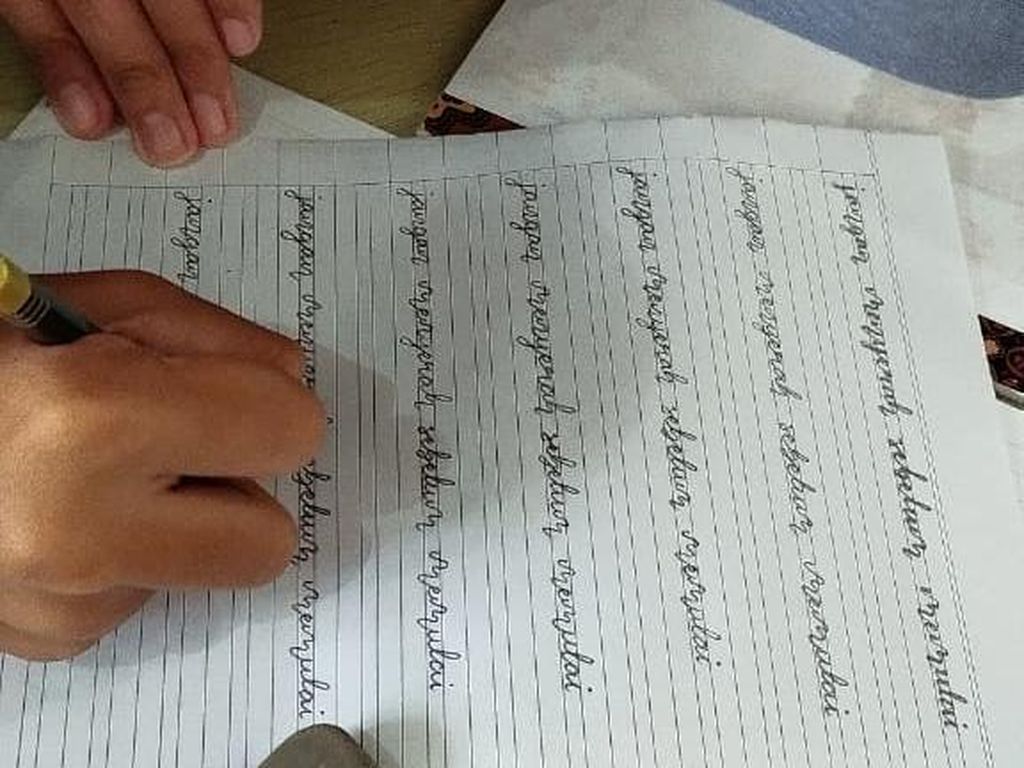 jangan menyerah sebelum memulai
jangan menyerah sebelum memulai
jangan menyerah sebelum memulai
jangan menyerah sebelum memulai
jangan menyerah sebelum memulai
jangan sebelum memulai
jangan